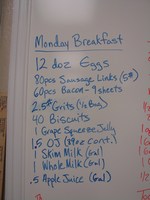 Monday Breakfast
12 doz Eggs
80pcs Sausage Links (5#)
60pcs Bacon-4sheets
2.5# Grits (½ Bag)
40 Biscuits
1 Grape Squeeze Jelly
1.5 OJ
1 Skim Milk (Gal)
1 Whole Milk (Gal)
.5 Apple Juice (Gal)